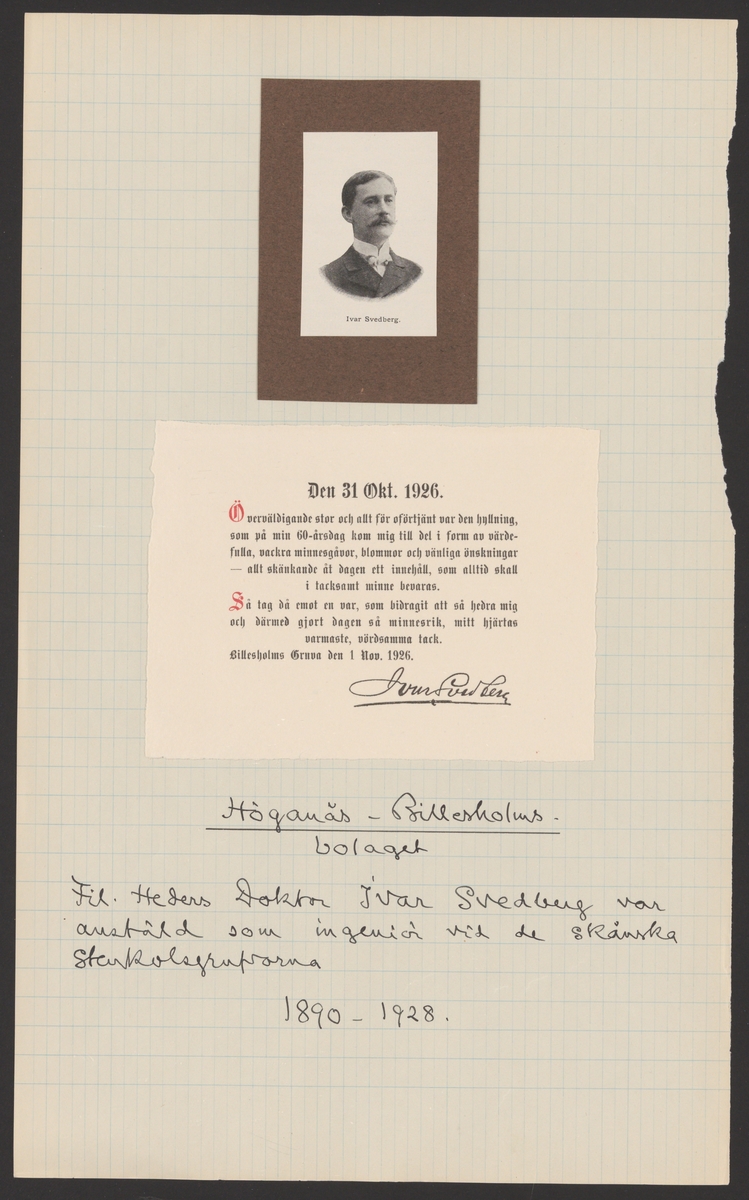 Ivar Svedberg.
Den 31 Okt. 1926.
Överväldigande stor och allt för oförtjänt var den hyllning,
som på min 60-årsdag kom mig till del i form av värde-
fulla, vackra minnesgåvor, blommor och vänliga önskningar
— allt skänkande åt dagen ett innehåll, som alltid skall
i tacksamt minne bevaras.
Så tag då emot en var, som bidragit att så hedra mig
och därmed gjort dagen så minnesrik, mitt hjärtas
varmaste, vördsamma tack.
Billesholms Gruva den 1 Nov. 1926.
Ivar Svedberg
Höganäs - Billesholms-
bolaget
Fil. Heders Doktor Ivar Svedberg var
anställd som ingeniör vid de skånska
stenkolsgrufvorna
1890 - 1928.